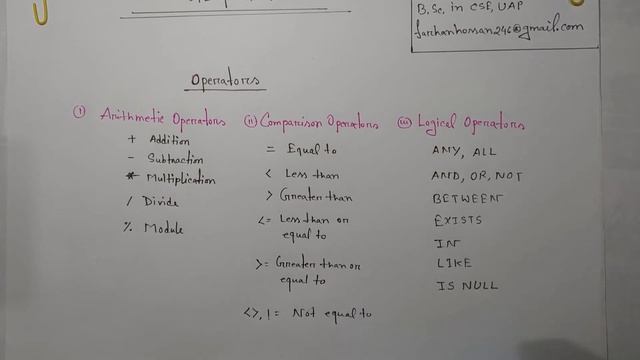 B.Sc. in CSE, UAP
farhanhossan246@gmail.com
Operators
(i) Arithmetic Operators
+ Addition
- Subtraction
* Multiplication
/ Divide
% Module
(ii) Comparison Operators
= Equal to
< Less than
> Greater than
<= Less than or
equal to
>= Greater than or
equal to
<>, != Not equal to
(iii) Logical Operators
ANY, ALL
AND, OR, NOT
BETWEEN
EXISTS
IN
LIKE
IS NULL